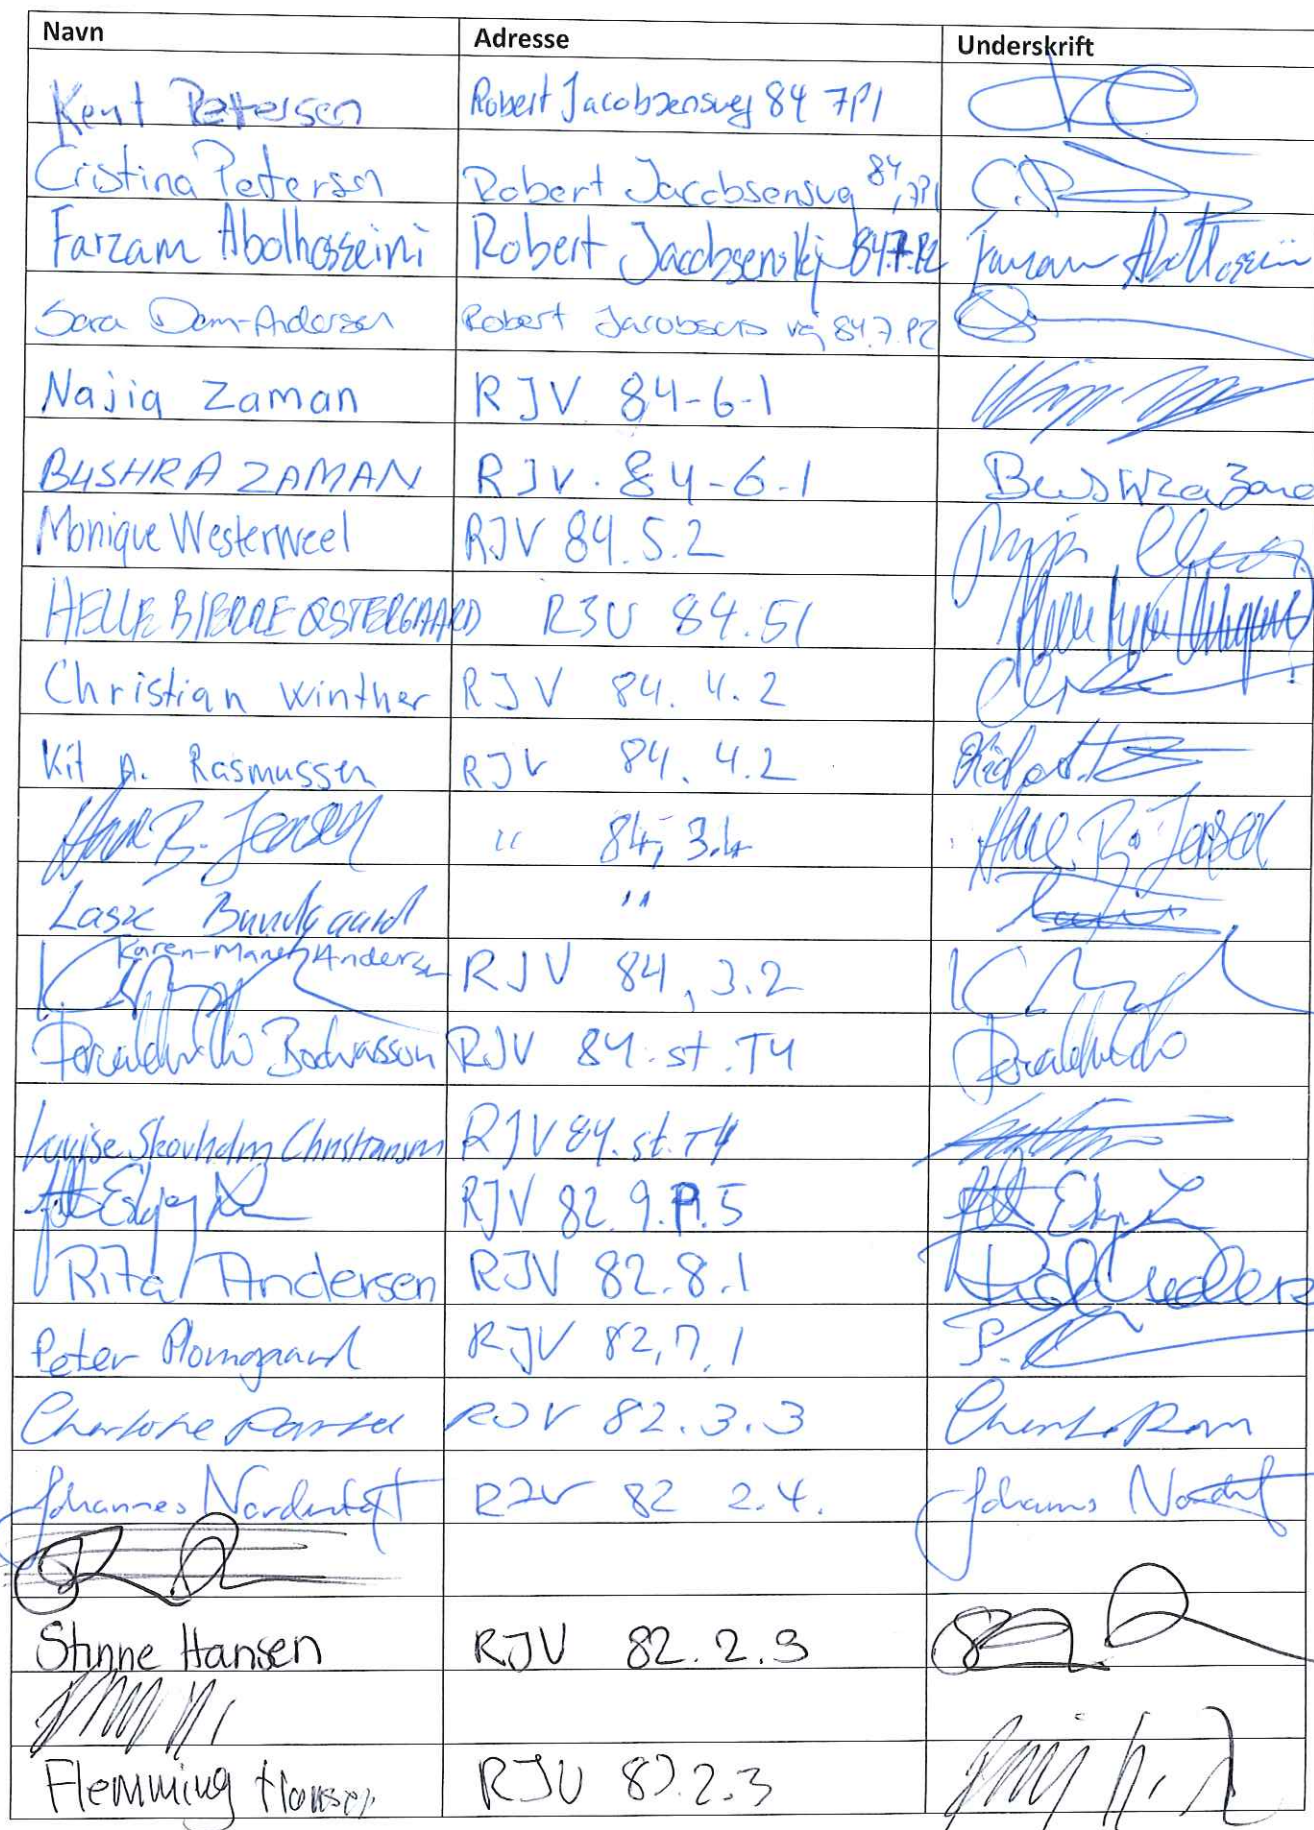 Navn Adresse Underskrift
Kent Petersen Robert Jacobsensvej 84 7P1
Cristina Petersen Robert Jacobsensvej 84, 7P1 C.P
Farzam Abolhosseini Robert Jacobsens Vej 84.7.P2 Farzam Abolhosseini
Sara Dam-Andersen Robert Jacobsens vej 84.7.P2
Najia Zaman RJV 84-6-1
BUSHRA ZAMAN RJV. 84-6-1 Bushra Zama
Monique Westerweel RJV 84.5.2
HELLE BJERRE ØSTERGAARD RJV 84.51
Christian Winther RJV 84.4.2
Kit A. Rasmussen RJV 84.4.2
B. Jensen " 84, 3.4 B. Jensen
Lasse Bundgaard "
Karen-Maren Andersen RJV 84, 3.2
Bodvasson RJV 84.st.T4
Louise Skovholm Christiansen RJV 84.st.T4
RJV 82.9.P.5
Rita Andersen RJV 82.8.1 Rita Anders
Peter Plomgaard RJV 82,7,1 P.
Charlotte RJV 82.3.3
Johannes Nordentoft RJV 82 2.4. Johannes
Stinne Hansen RJV 82.2.3
Flemming Hansen RJV 82.2.3